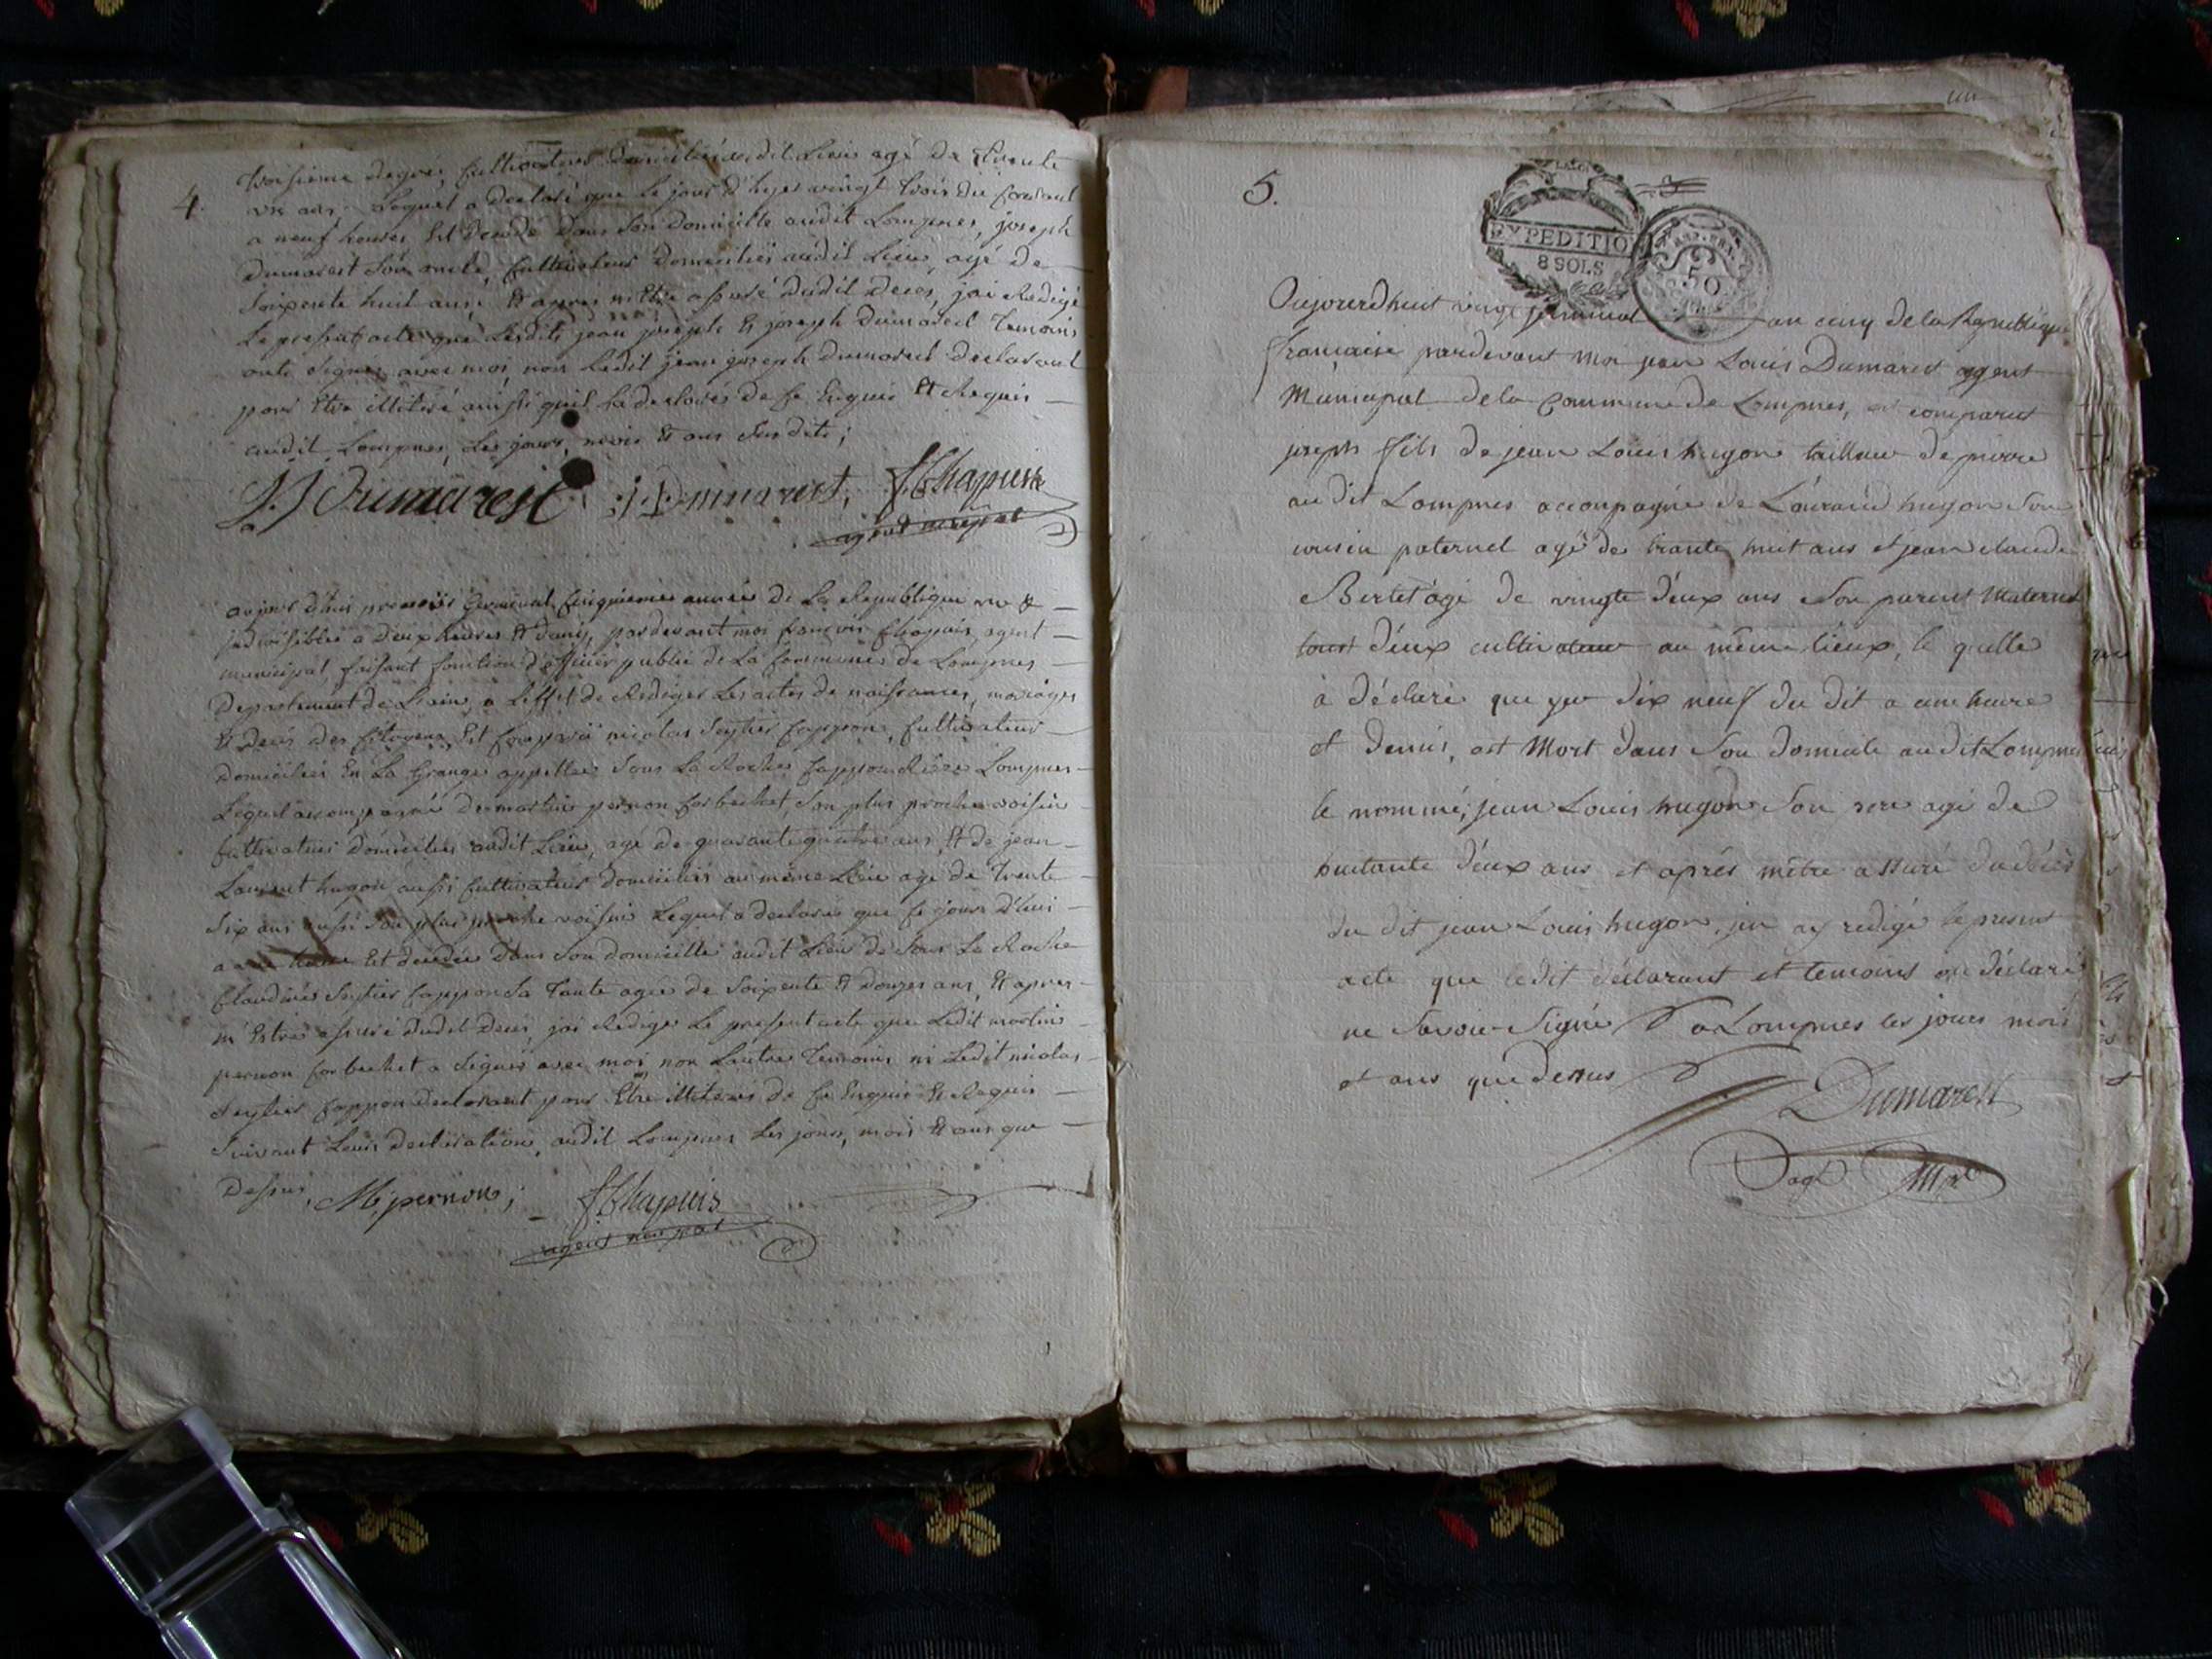 4.
troisieme degré, Cultivateur domicilié audit Lieu agé de trente
ans Lequel a declaré que Le jour d'hyer vingt trois du Courant
a neuf heures, Est decedé dans son domicille audit Lompnes, joseph
dumarest son oncle, Cultivateur domicilié audit Lieu, agé de
soixente huit ans, Et apres m'Etre assuré dudit deces, jai Redigé
Le present acte que Lesdits jean joseph Et joseph dumarest Temoins
onts signés avec moi, non Ledit jean joseph dumarest declarant
pour Etre illitéré ainssi quil la declarés de Ce Enquis Et Requis
audit Lompnes, Les jours, mois Et ans susdits;
JJ Dumarest j Dumarest, f. Chapuis
agent municipal
aujourd'hui premier Germinal Cinquieme année de La Republique une Et
indivisible a deux heures Et demy, pardevant moi francois Chapuis, agent
municipal faisant fonction d'officier public de La Commune de Lompnes
departement de L'ain, a L'effet de Rediger Les actes de naissances, mariages
Et deces des Citoyens, Est Comparu nicolas Seytier Cappon, Cultivateur
domicilié En La Grange appellée sous La Roche Lompnes
Lequel accompagné de martin pernon Corbechet, son plus proche voisin
Cultivateur domicilié audit Lieu, agé de quarante quatre ans, Et de jean
Laurent hugon aussi Cultivateur domicilié au même Lieu agé de Trente
six ans aussi son plus proche voisin Lequel a declaré que Ce jour d'hui
a une heure Est decedée dans son domicille audit Lieu de sous La Roche
Claudine Seytier Cappon sa Tante agée de soixente Et douzes ans, Et apres
m'Estre assuré dudit deces, jai Rediger Le present acte que Ledit martin
pernon Corbechet a signé avec moi, non Lautre Temoin ni Ledit nicolas
Seytier Cappon declarant pour Etre illiterés de Ce Enquis Et Requis
suivant Leurs declaration, audit Lompnes Les jours, mois Et ans que
dessus, M. pernon; f. Chapuis
agent municipal
5.
EXPEDITIO
8 SOLS
50
Oujourdhuit vingt germinal an cinq de la Republique
francaise pardevant moi jean Louis Dumarest agent
Municipal de la Commune de Lompnes, est comparut
joseph fils de jean Louis hugon tailleur de pierre
au dit Lompnes accompagné de Laurand hugon Son
cousin paternel agé de trante huit ans et jean claude
Bertet agé de vingte deux ans Son parent Maternel
tout deux cultivateur au même lieux, le quelle
à déclaré que yer dix neuf du dit a une heure
et demis, est Mort dans Son domicile au dit Lompnes
le nommé, jean Louis hugon Son pere agé de
huitante deux ans et aprés mêtre assuré du décès
du dit jean Louis hugon, jen ay redigé le present
acte que ledit déclarant et temoins on déclaré
ne Savoir Signé à Lompnes les jours mois
et ans que dessus
Dumarest
agt Mpl